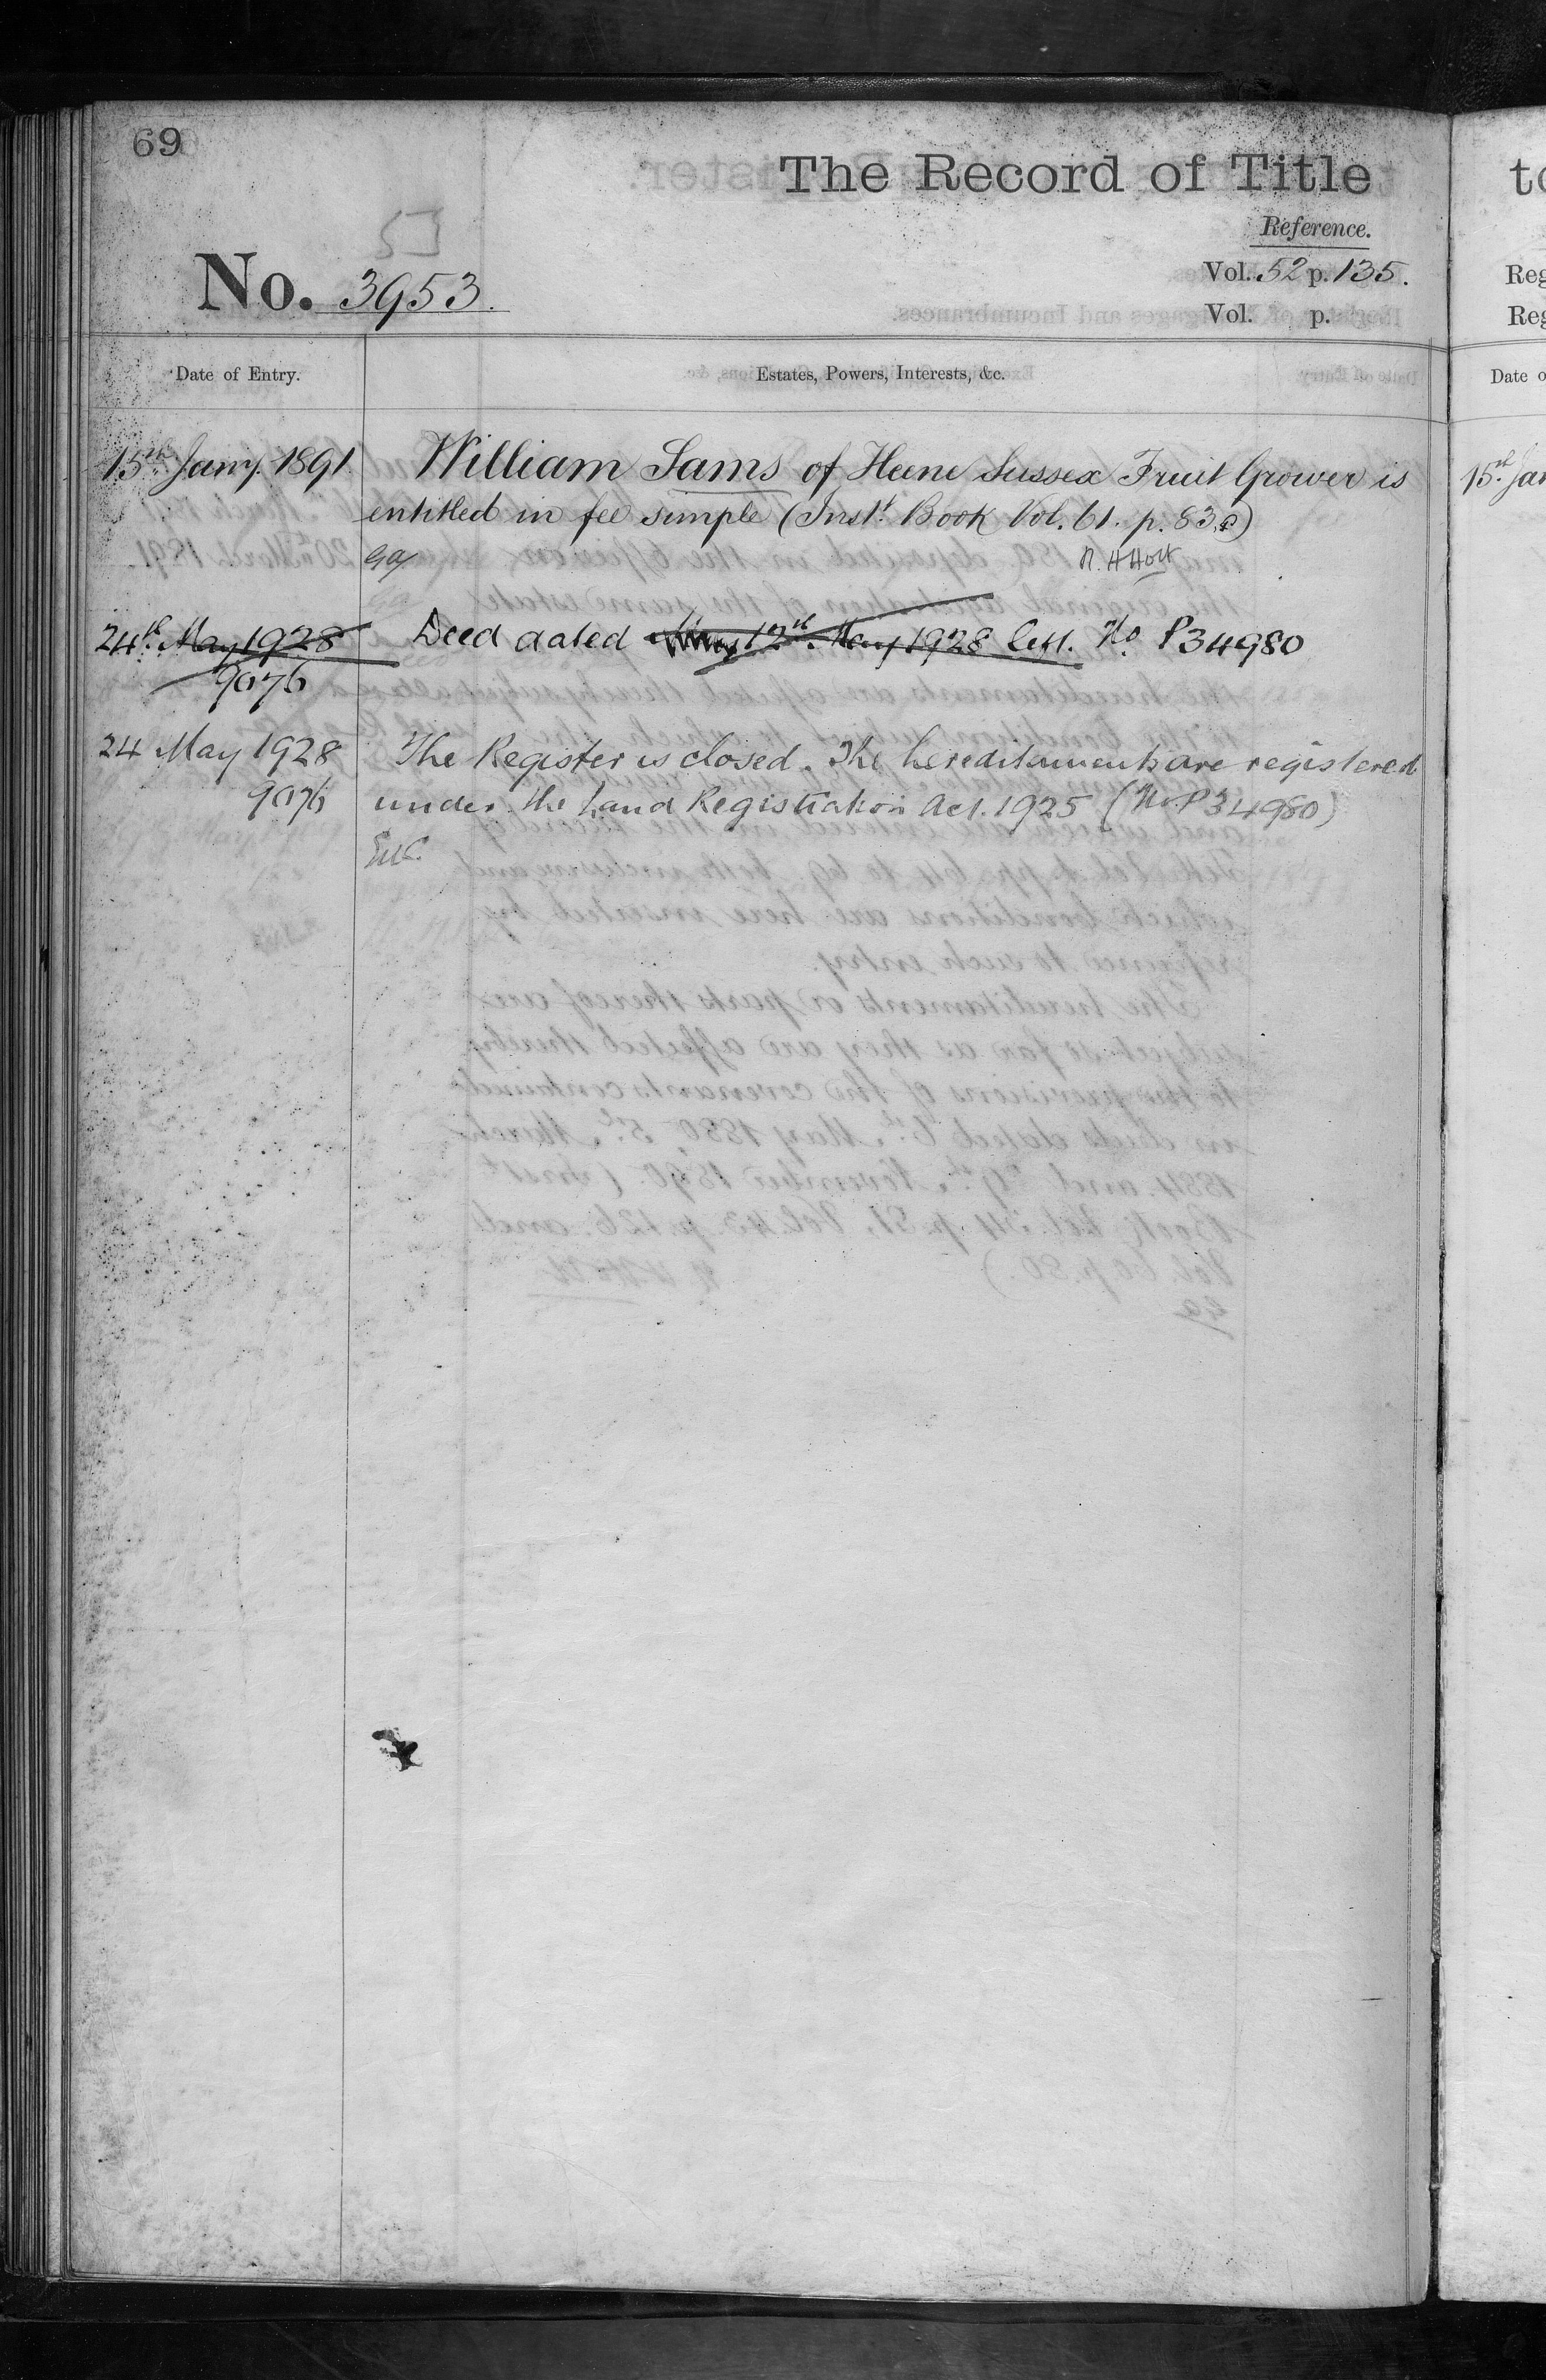 69
The Record of Title
Reference.
53
No. 3953.
Vol. 52 p. 135.
Vol. p.
Date of Entry.
Estates, Powers, Interests, &c.
15th Jany. 1891 William Sams of Heene Sussex Fruit Grower is
entitled in fee simple (Inst. Book Vol. 61. p. 83)
R. H Holt
24th May 1928 Deed dated 12th May 1928 Cert. No P34980
9076
24 May 1928 The Register is closed. The hereditaments are registered
9076 under the Land Registration Act. 1925 (No. P34980)
Reg
Reg
Date o
15th Jan